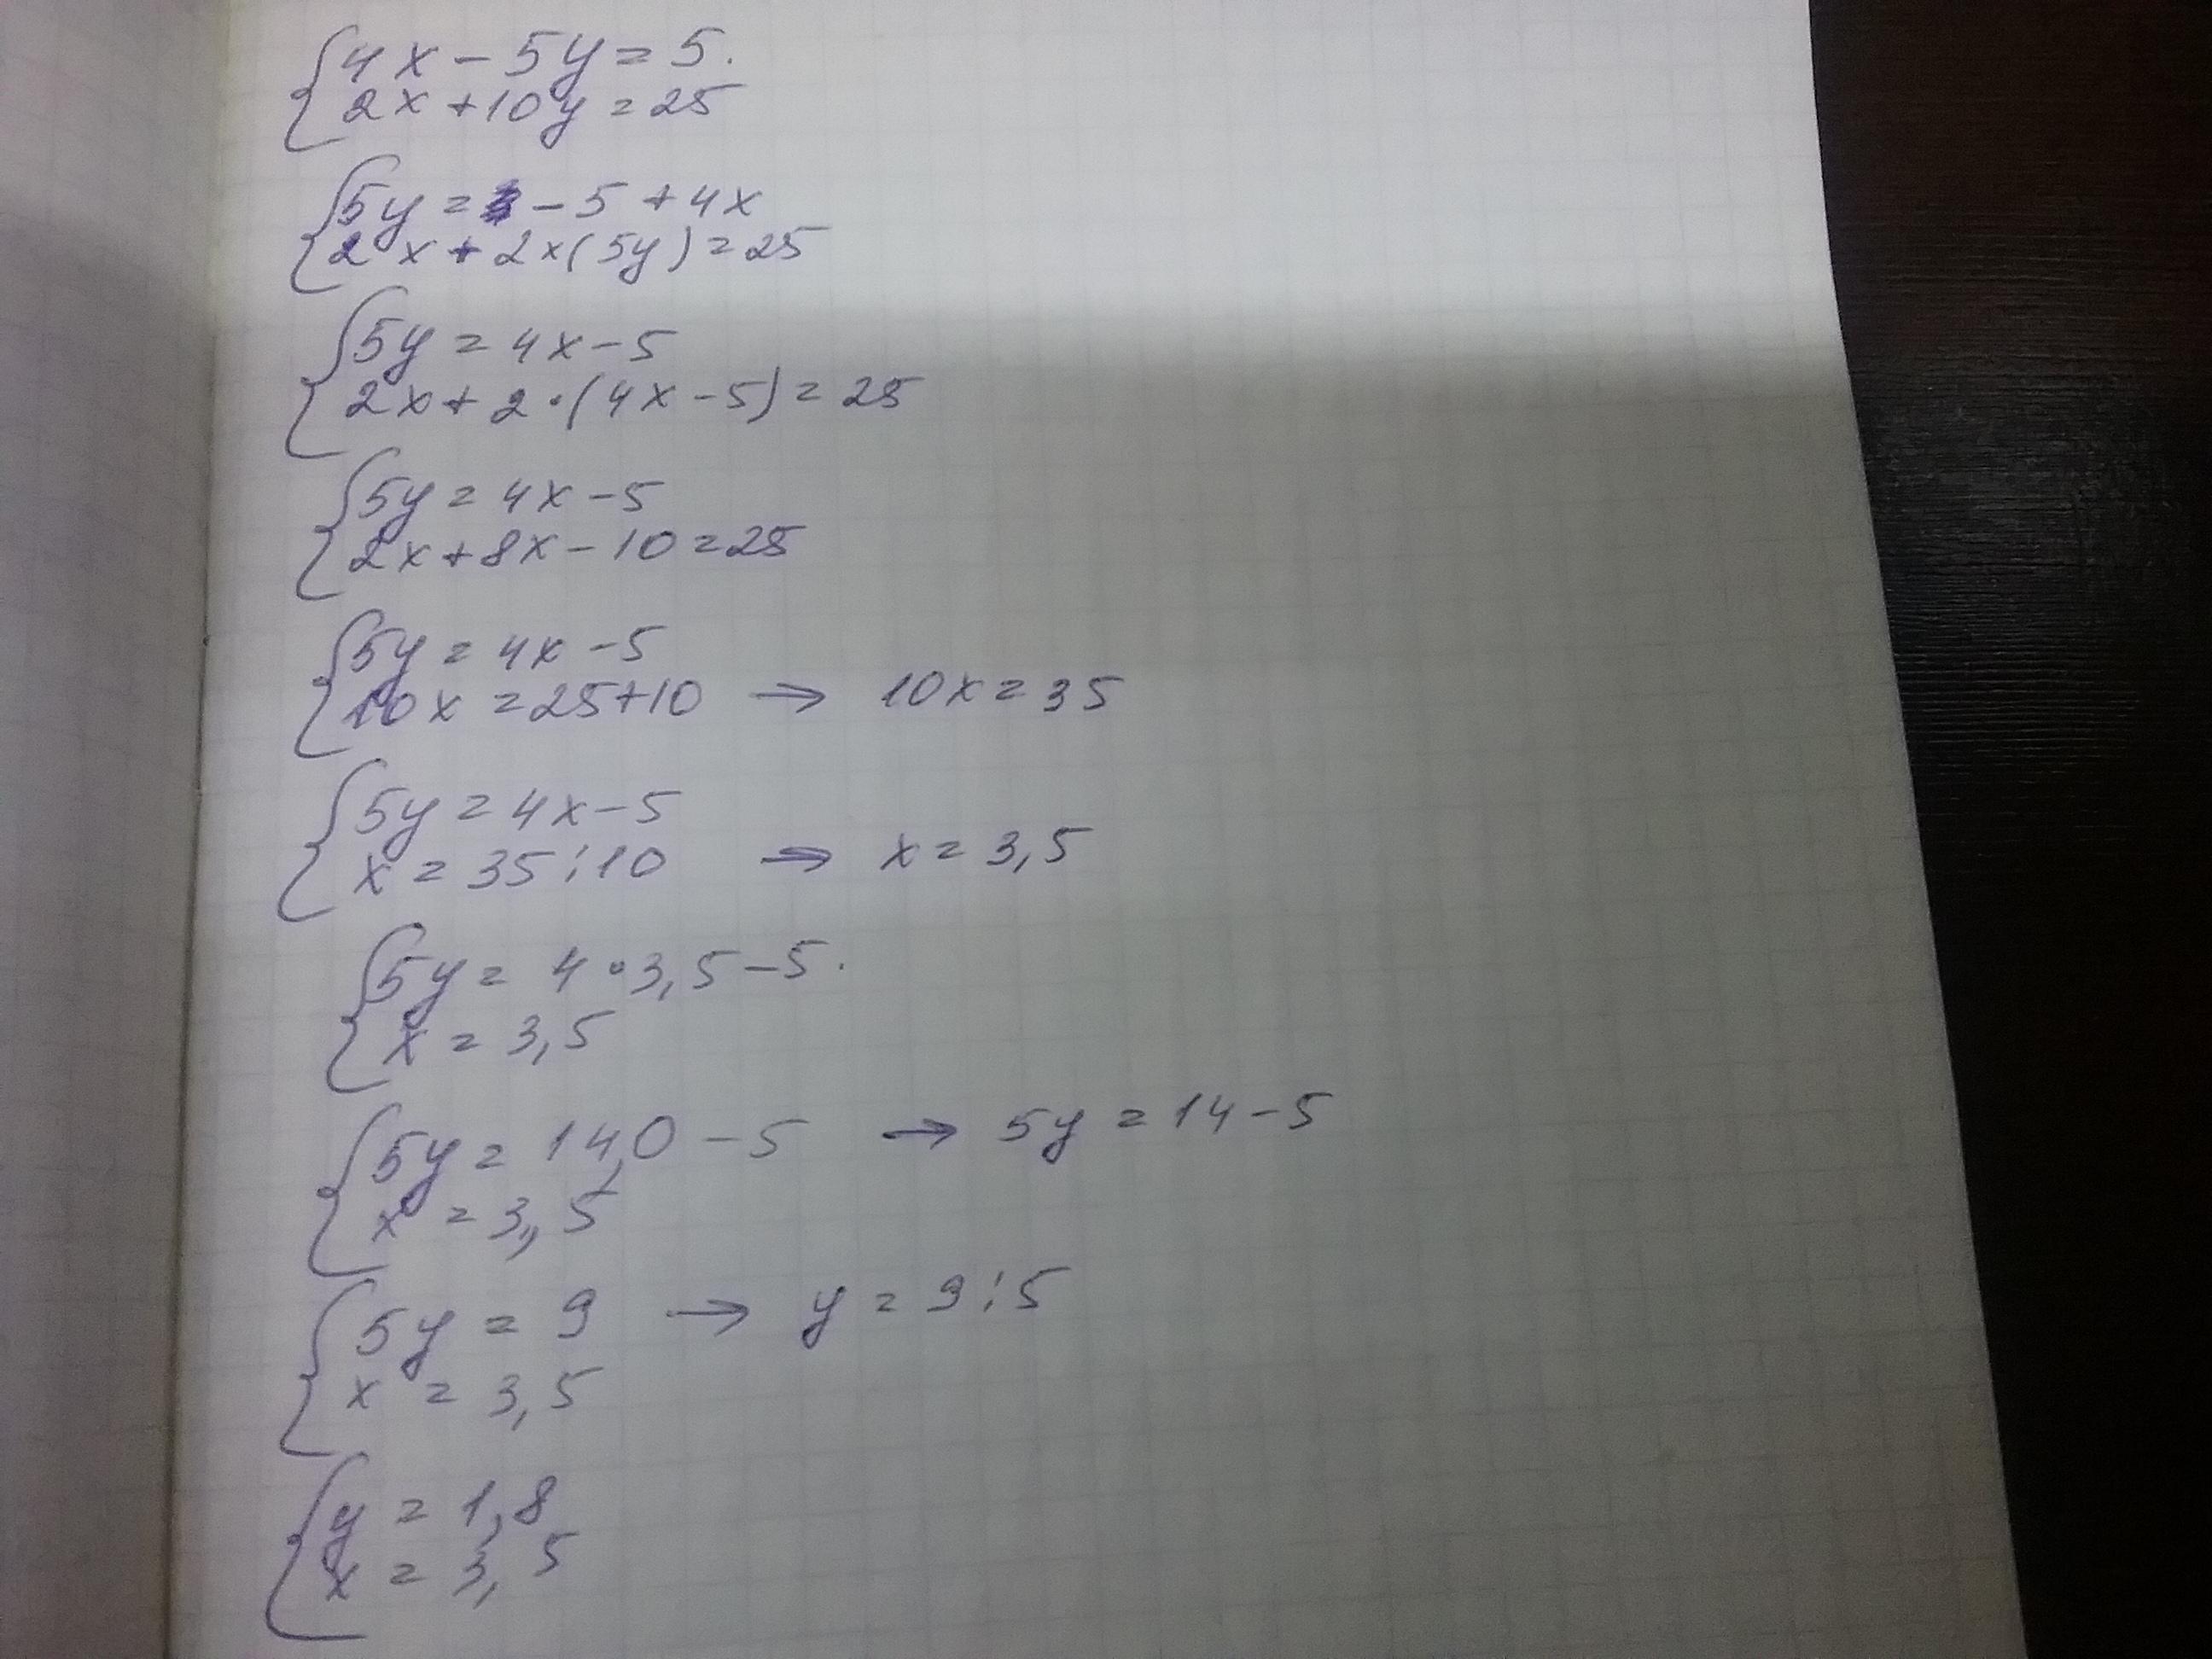 4x - 5y = 5.
2x + 10y = 25
5y = - 5 + 4x
2x + 2x(5y) = 25
5y = 4x - 5
2x + 2·(4x - 5) = 25
5y = 4x - 5
2x + 8x - 10 = 25
5y = 4x - 5
10x = 25 + 10 → 10x = 35
5y = 4x - 5
x = 35 : 10 → x = 3,5
5y = 4 · 3,5 - 5.
x = 3,5
5y = 14,0 - 5 → 5y = 14 - 5
x = 3,5
5y = 9 → y = 9 : 5
x = 3,5
y = 1,8
x = 3,5